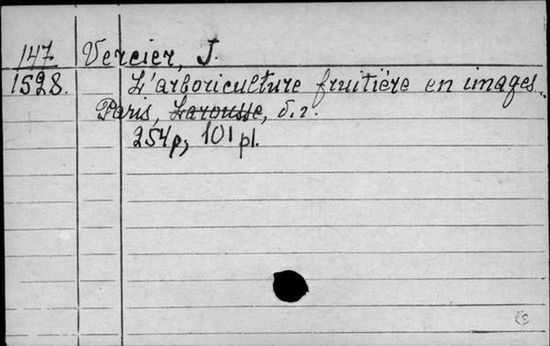 147 Vercier, J.
1528. L'arboriculture fruitière en images.
Paris, Larousse, б.г.
254p, 101 pl.